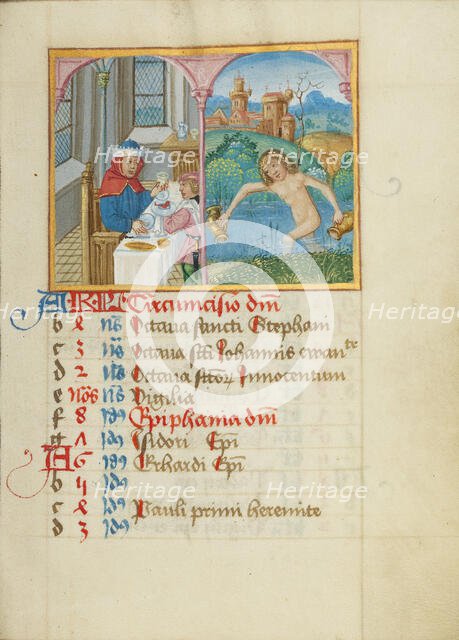 A KL Circumcisio dni
b e no9 Octava sancti Stephani
c 3 no9 Octava scti Johannis ewan te
d 2 no9 Octava sctor Innocentum
e no9 Vigilia
f 8 id9 Epiphania dni
g A id9 Isidori Epi
A 6 id9 Erhardi Epi
b 4 id9
c e id9 Pauli primi heremite
d 3 id9
Heritage
Heritage
Heritage
Heritage
Heritage
Heritage
Heritage
Heritage